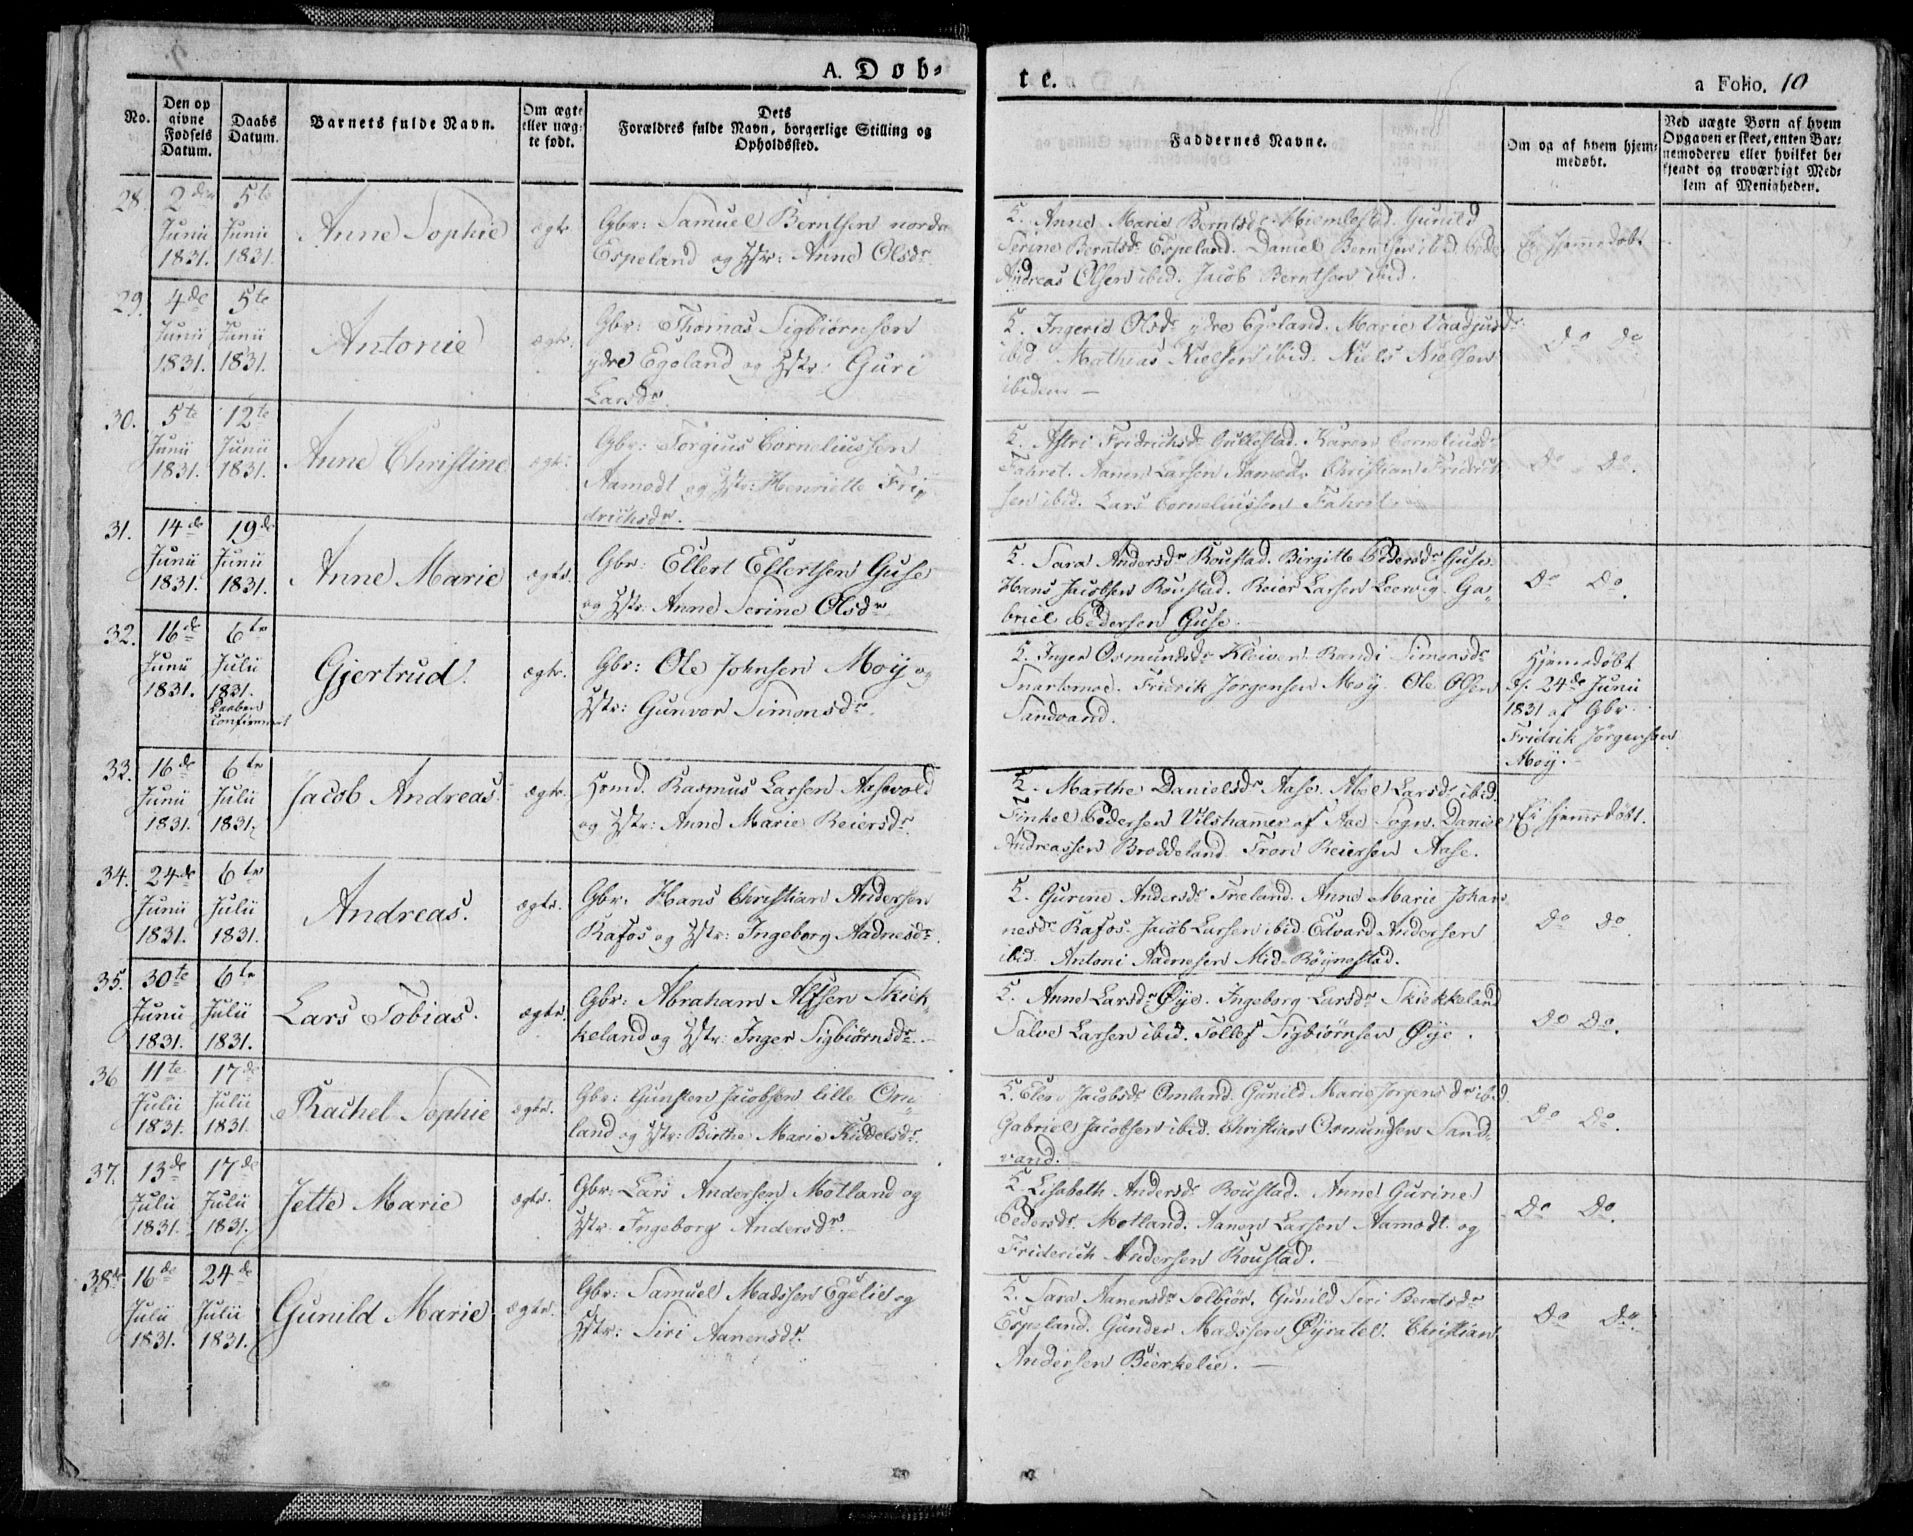 A. Døb-
No.
Den op
givne
Fødsels
Datum.
Daabs
Datum.
Barnets fulde Navn.
Om ægte
eller uæg-
te født.
Dets
Forældres fulde Navn, borgerlige Stilling og
Opholdssted.
28
2den
Junii
1831.
5te
Junii
1831.
Anne Sophie
ægte
Gbr: Samuel Berntsen nordre
Espeland og Hstr: Anne Olsdr.
29.
4de
Junii
1831.
5te
Junii
1831.
Antonie
ægte.
Gbr: Thomas Sigbiørnsen
ydre Egeland og Hstr: Guri
Larsdr.
30.
5te
Junii
1831.
12te
Junii
1831.
Anne Christine
ægte.
Gbr: Torgius Corneliussen
Aamodt og Hstr: Henriette Fri-
drichsdr.
31.
14de
Junii
1831.
19de
Junii
1831.
Anne Marie
ægte.
Gbr: Ellert Ellertsen Guse
og Hstr: Anne Serine Olsdr
32.
16de
Junii
1831.
6te
Julii
1831.
Daaben
Confirmeret
Gjertrud.
ægte.
Gbr: Ole Johnsen Moij og
Hstr: Gunvor Simonsdr.
33.
16de
Junii
1831.
6te
Julii
1831.
Jacob Andreas
ægte.
Hsmd. Rasmus Larsen Aasevold
og Hstr: Anne Marie Reiersdr.
34.
24de
Junii
1831.
6te
Julii
1831.
Andreas.
ægte.
Gbr. Hans Christian Andersen
Rafos og Hstr: Ingeborg Aadnesdr.
35.
30te
Junii
1831.
6te
Julii
1831.
Lars Tobias.
ægte.
Gbr: Abraham Alfsen Skiek-
keland og Hstr: Inger Sigbiørnsdr.
36
11te
Julii
1831.
17de
Julii
1831.
Rachel Sophie
ægte.
Gbr: Gunsten Jacobsen lille Om-
land og Hstr: Birthe Marie Kiddelsdr.
37.
13de
Julii
1831.
17de
Julii
1831.
Jette Marie
ægte.
Gbr: Lars Andersen Motland og
Hstr Ingeborg Andersdr.
38
16de
Julii
1831.
24de
Julii
1831.
Gunild Marie
ægte.
Gbr: Samuel Madssen Egelie og
Hstr: Siri Aanensdr.
te.
a Folio. 10
Faddernes Navne.
Om og af hvem hjem-
medøbt.
Ved uægte Børn af hvem
Opgaven er skeet, enten Bar-
nemoderen eller hvilket be-
kjendt og troværdigt Med-
lem af Menigheden.
Anne Marie Berntsdr. Gunild
Serine Berntsdr. Espeland. Daniel Berntsen ibid.
Andreas Olsen ibid. Jacob Berntsen ibid.
Ei hjemedøbt
Ingerid Olsdr. ydre Egeland. Marie
ibid. Mathias Nielsen ibid. Niels Nielsen
ibidem —
Do Do
Astri Fridrichsdr. Karen Corneliusdr.
Fahret. Aanen Larsen Aamodt. Christian Fridrich-
sen ibid. Lars Corneliussen Fahret.
Do Do.
Sara Andersdr Roustad. Birgitte Pedersdr Guse.
Hans Jacobsen Roustad. Reier Larsen Leervig. Ga-
briel Pedersen Guse.
Do Do.
Inger Osmundsdr Kleiven. Randi Simonsdr
Snartemoe. Fridrik Jørgensen Moij. Ole Olsen
Sandvand.
Hjemedøbt
d. 24de Junii
1831 af Gbr.
Fridrik Jørgensen
Moij.
Marthe Danielsdr Aase. Abel Larsdr ibid.
Tinkel Pedersen Vilshamer af Aae Sogn. Daniel
Andreassen Broddeland. Tron Reiersen Aase.
Ei hjemedøbt.
Gurine Andersdr Træland. Anne Marie Johan-
nesdr Rafos. Jacob Larsen ibid. Edvard Andersen
ibid. Antoni Aadnesen Mid-Røijnestad.
Do Do.
Anne Larsdr Øije. Ingeborg Larsdr Skiekkeland
Salve Larsen ibid. Tollef Sigbiørnsen Øije.
Do Do.
Elen Jacobsdr Omland. Gunild Marie Jørgensdr ibid
Gabriel Jacobsen ibid. Christian Osmundsen Sand-
vand.
Do Do.
Lisabeth Andersdr Roustad. Anne Gurine
Pedersdr. Motland. Aanen Larsen Aamodt og
Friderich Andersen Roustad.
Do Do.
Sara Aanensdr Solbiør. Gunild Siri Berntsdr
Espeland. Gunder Madssen Øijratel. Christian
Andersen Bierkelie. —
Do Do.